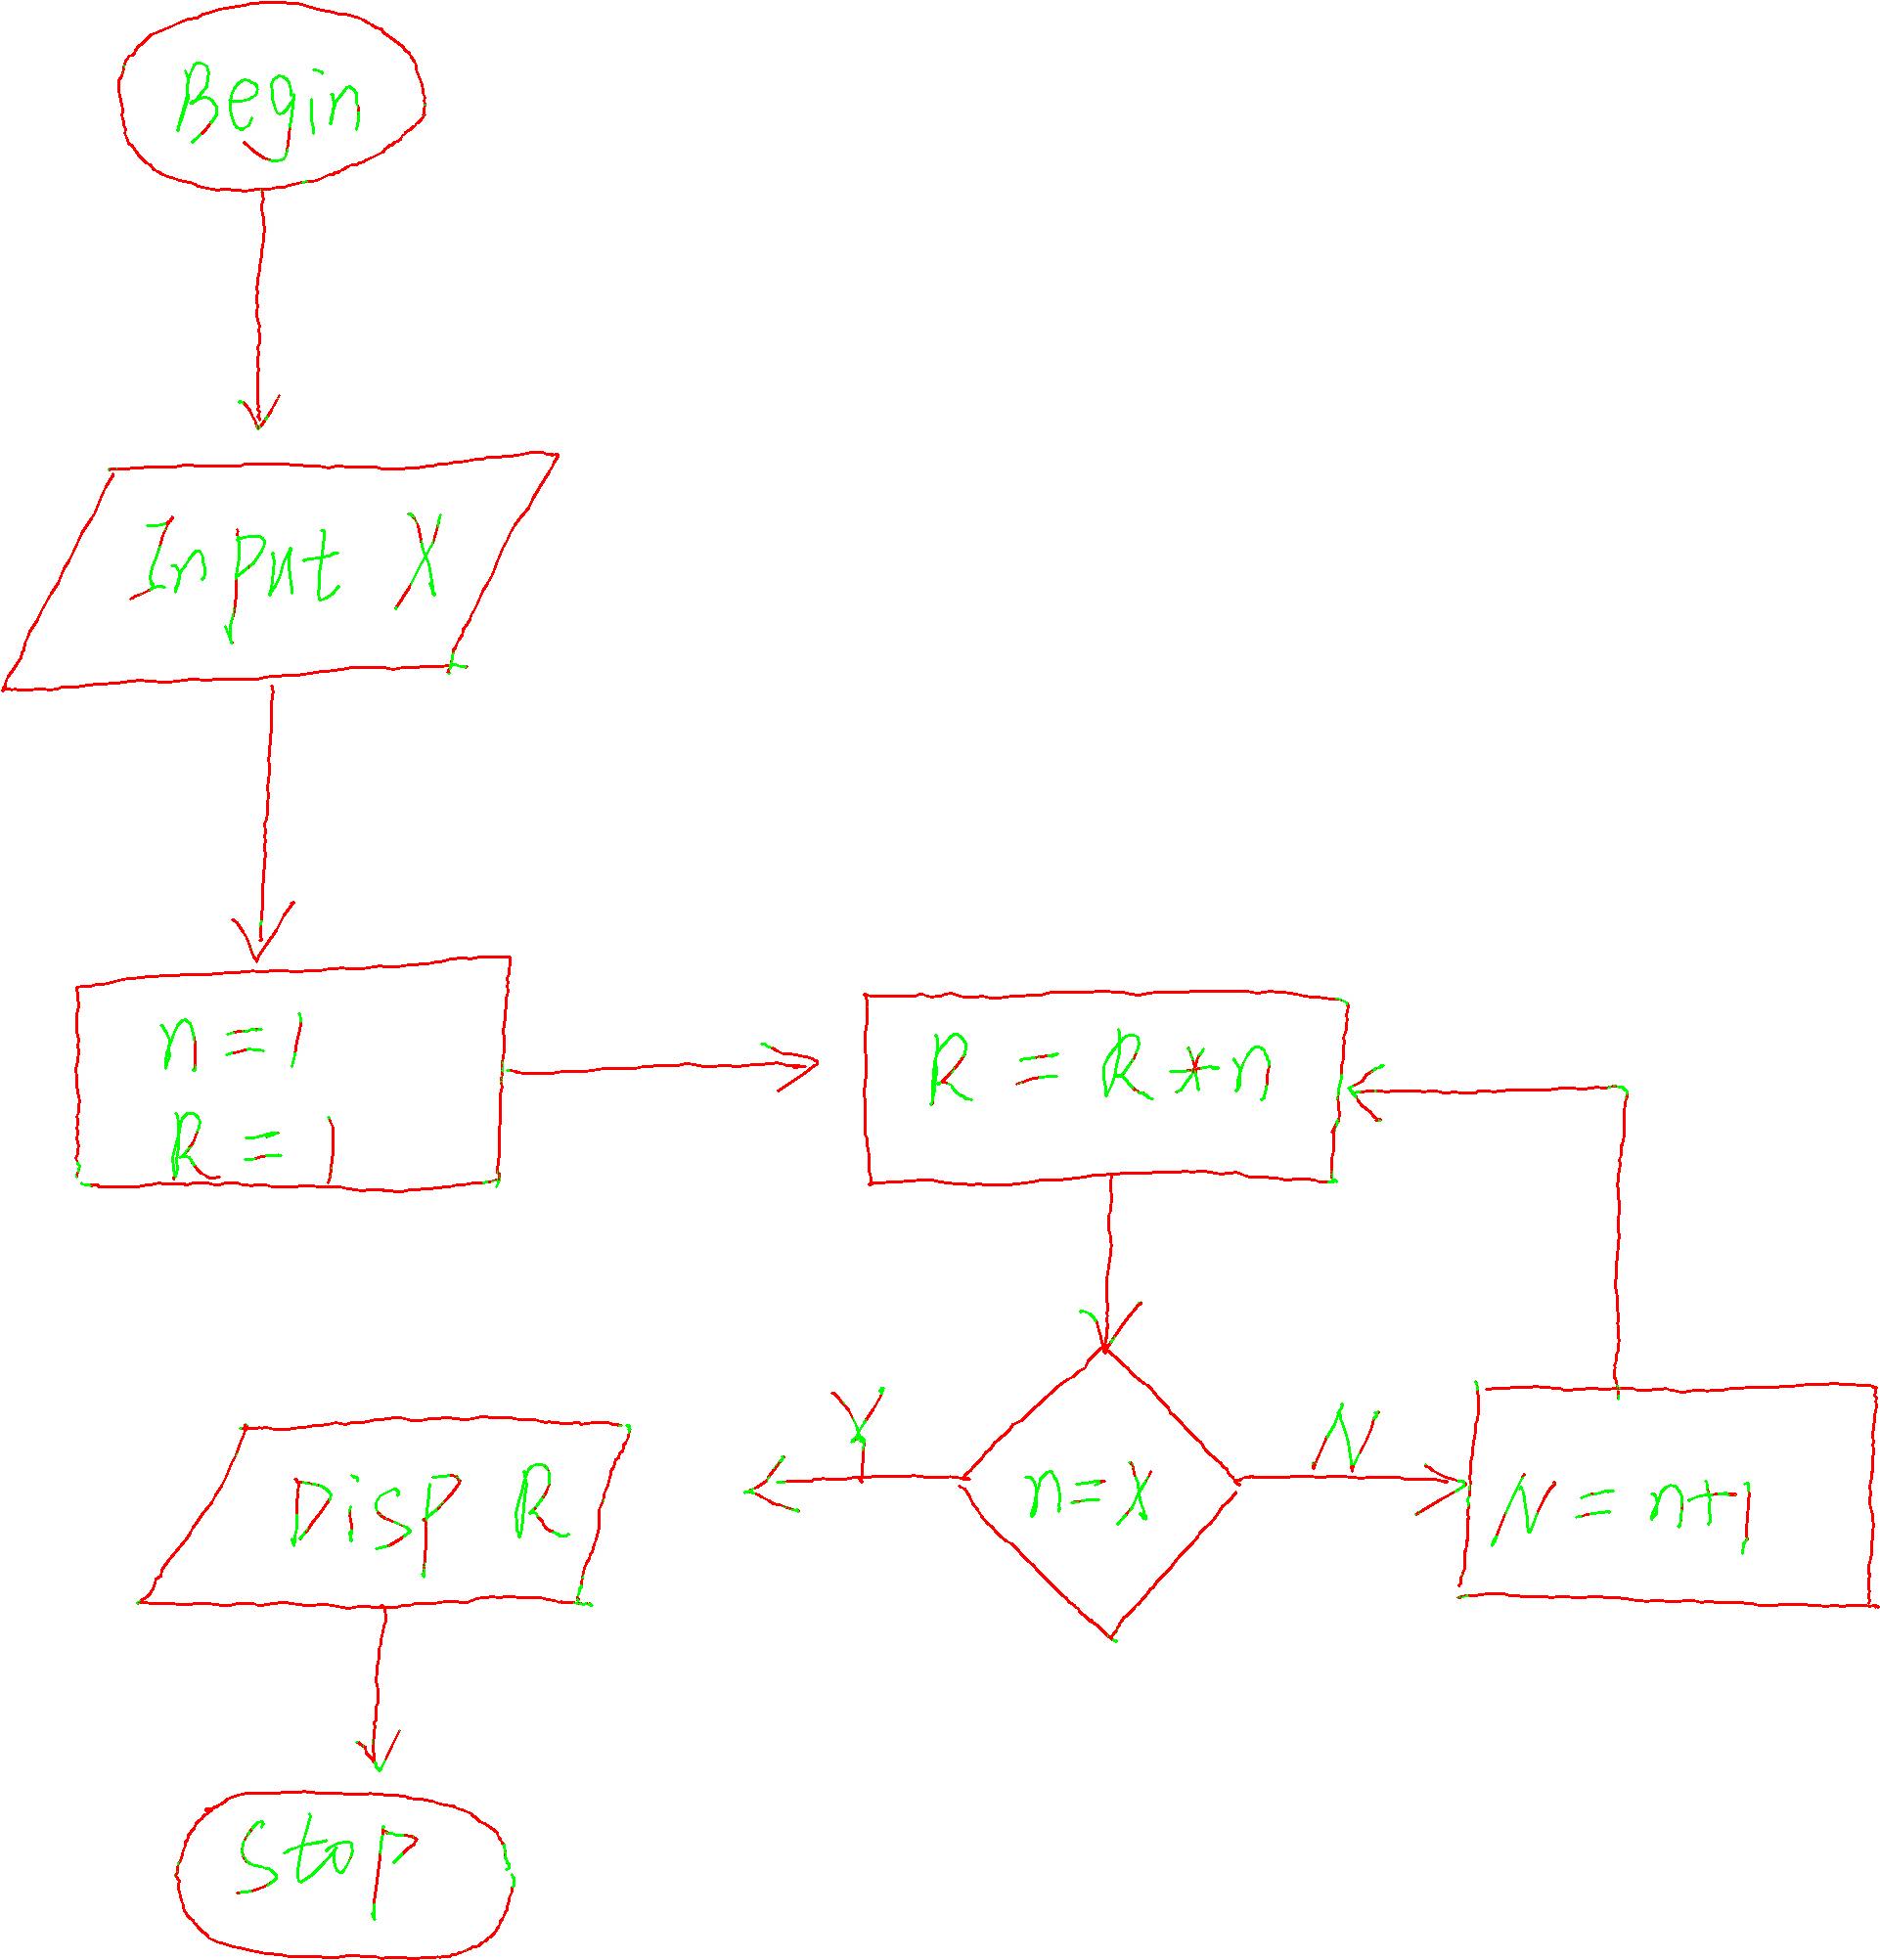 Begin
Input X
n=1
R=1
R=R*n
n=X
Y
N
N=n+1
Disp R
Stop